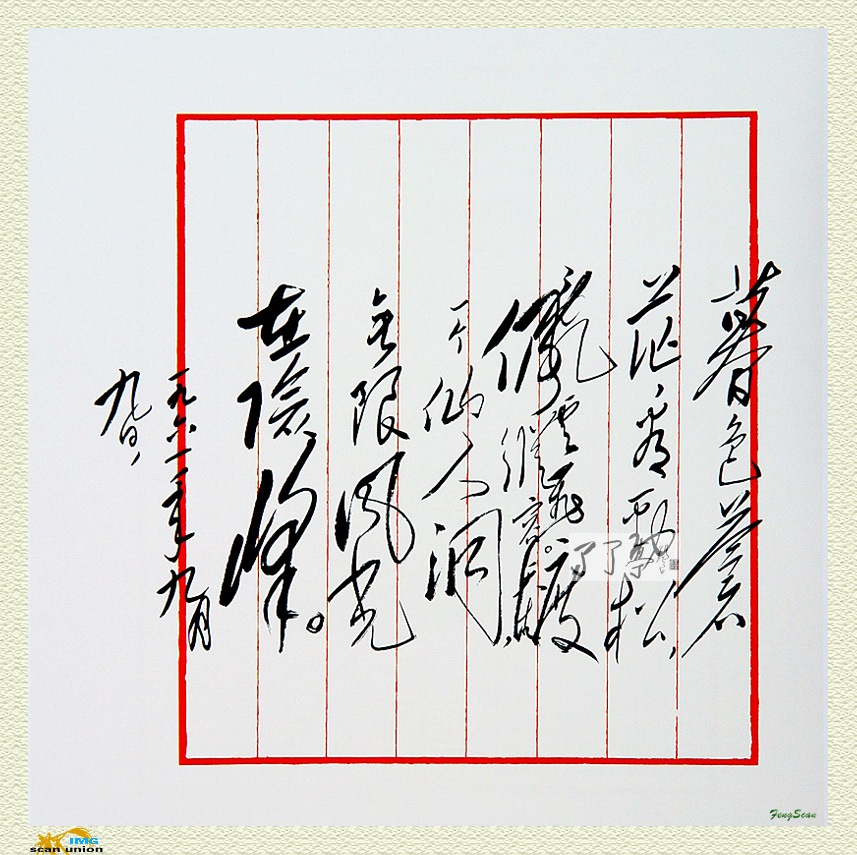 暮色蒼
茫看勁松,
亂雲飛渡
仍從容。天生
一个仙人洞
无限風光
在險峰。
一九六一年九月
九日,
了了亭
FengScan
IMG
scan union